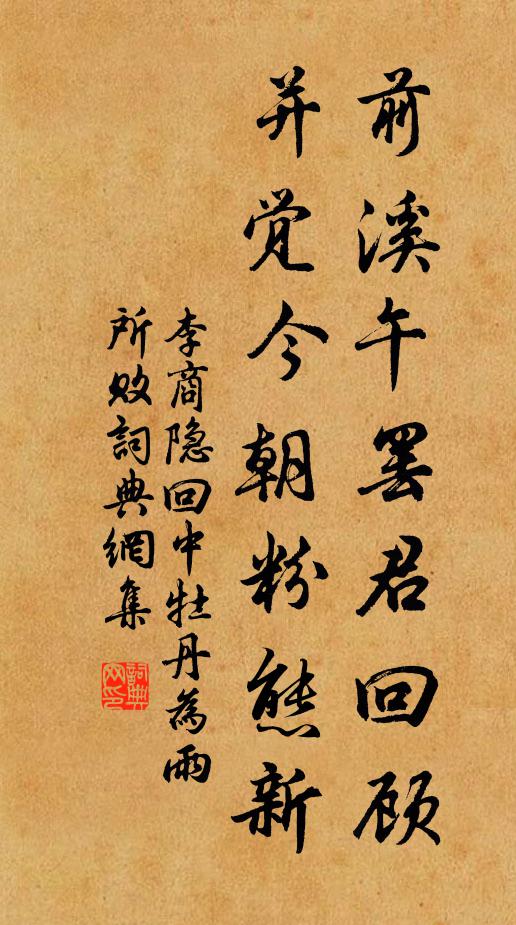 前溪午罢君回顾
并觉今朝粉態新
李商隐回中牡丹為雨
所败詞典網集
詞典网印